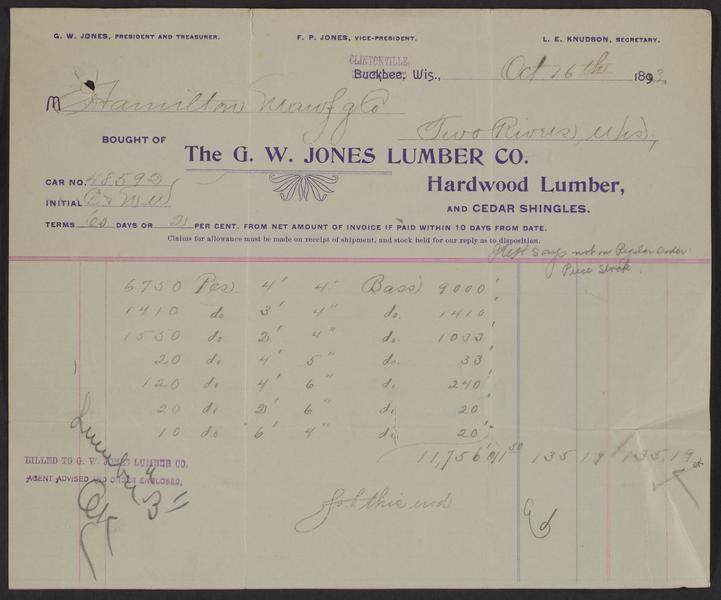 G. W. JONES, PRESIDENT AND TREASURER. F. P. JONES, VICE-PRESIDENT. L. E. KNUDSON, SECRETARY.
CLINTONVILLE,
Buckbee, Wis., Oct 16th 1893
M Hamilton Manfg Co
Two Rivers, Wis,
BOUGHT OF
The G. W. JONES LUMBER CO.
Hardwood Lumber,
AND CEDAR SHINGLES.
CAR NO. 48592
INITIAL C & N W
TERMS 60 DAYS OR 2 PER CENT. FROM NET AMOUNT OF INVOICE IF PAID WITHIN 10 DAYS FROM DATE.
Claims for allowance must be made on receipt of shipment, and stock held for our reply as to disposition.
says not on Regular Order
Piece Stock.
6750 Pcs. 4' 4" Bass 9000'
1410 do 3' 4" do. 1410'
1550 do 2' 4" do. 1033'
20 do 4' 5" do. 33'
120 do 4' 6" do. 240'
20 do 2' 6" do. 20'
10 do 6' 4" do. 20'
11,756' 11 50 135 19 135.19
BILLED TO G. W. JONES LUMBER CO.
AGENT ADVISED AND ORDER ENCLOSED.
Lumber
OK
f.o.b this end